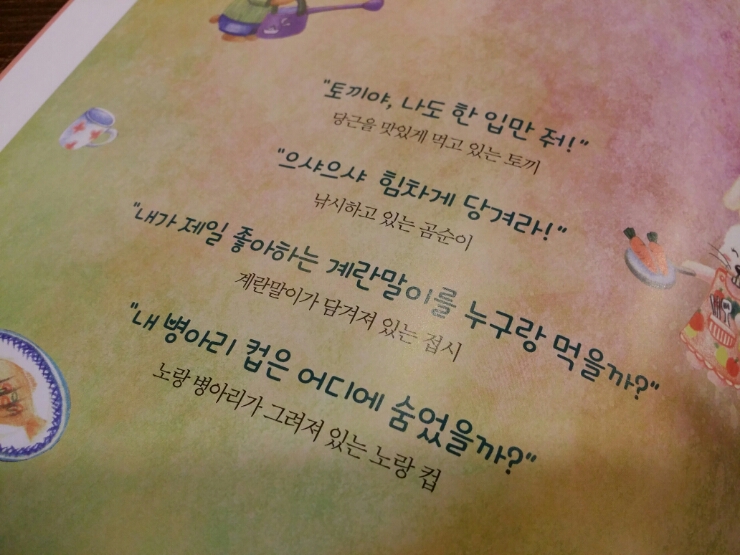 "토끼야, 나도 한 입만 줘!"
당근을 맛있게 먹고 있는 토끼
"으샤으샤 힘차게 당겨라!"
낚시하고 있는 곰순이
"내가 제일 좋아하는 계란말이를 누구랑 먹을까?"
계란말이가 담겨져 있는 접시
"내 병아리 컵은 어디에 숨었을까?"
노랑 병아리가 그려져 있는 노랑 컵